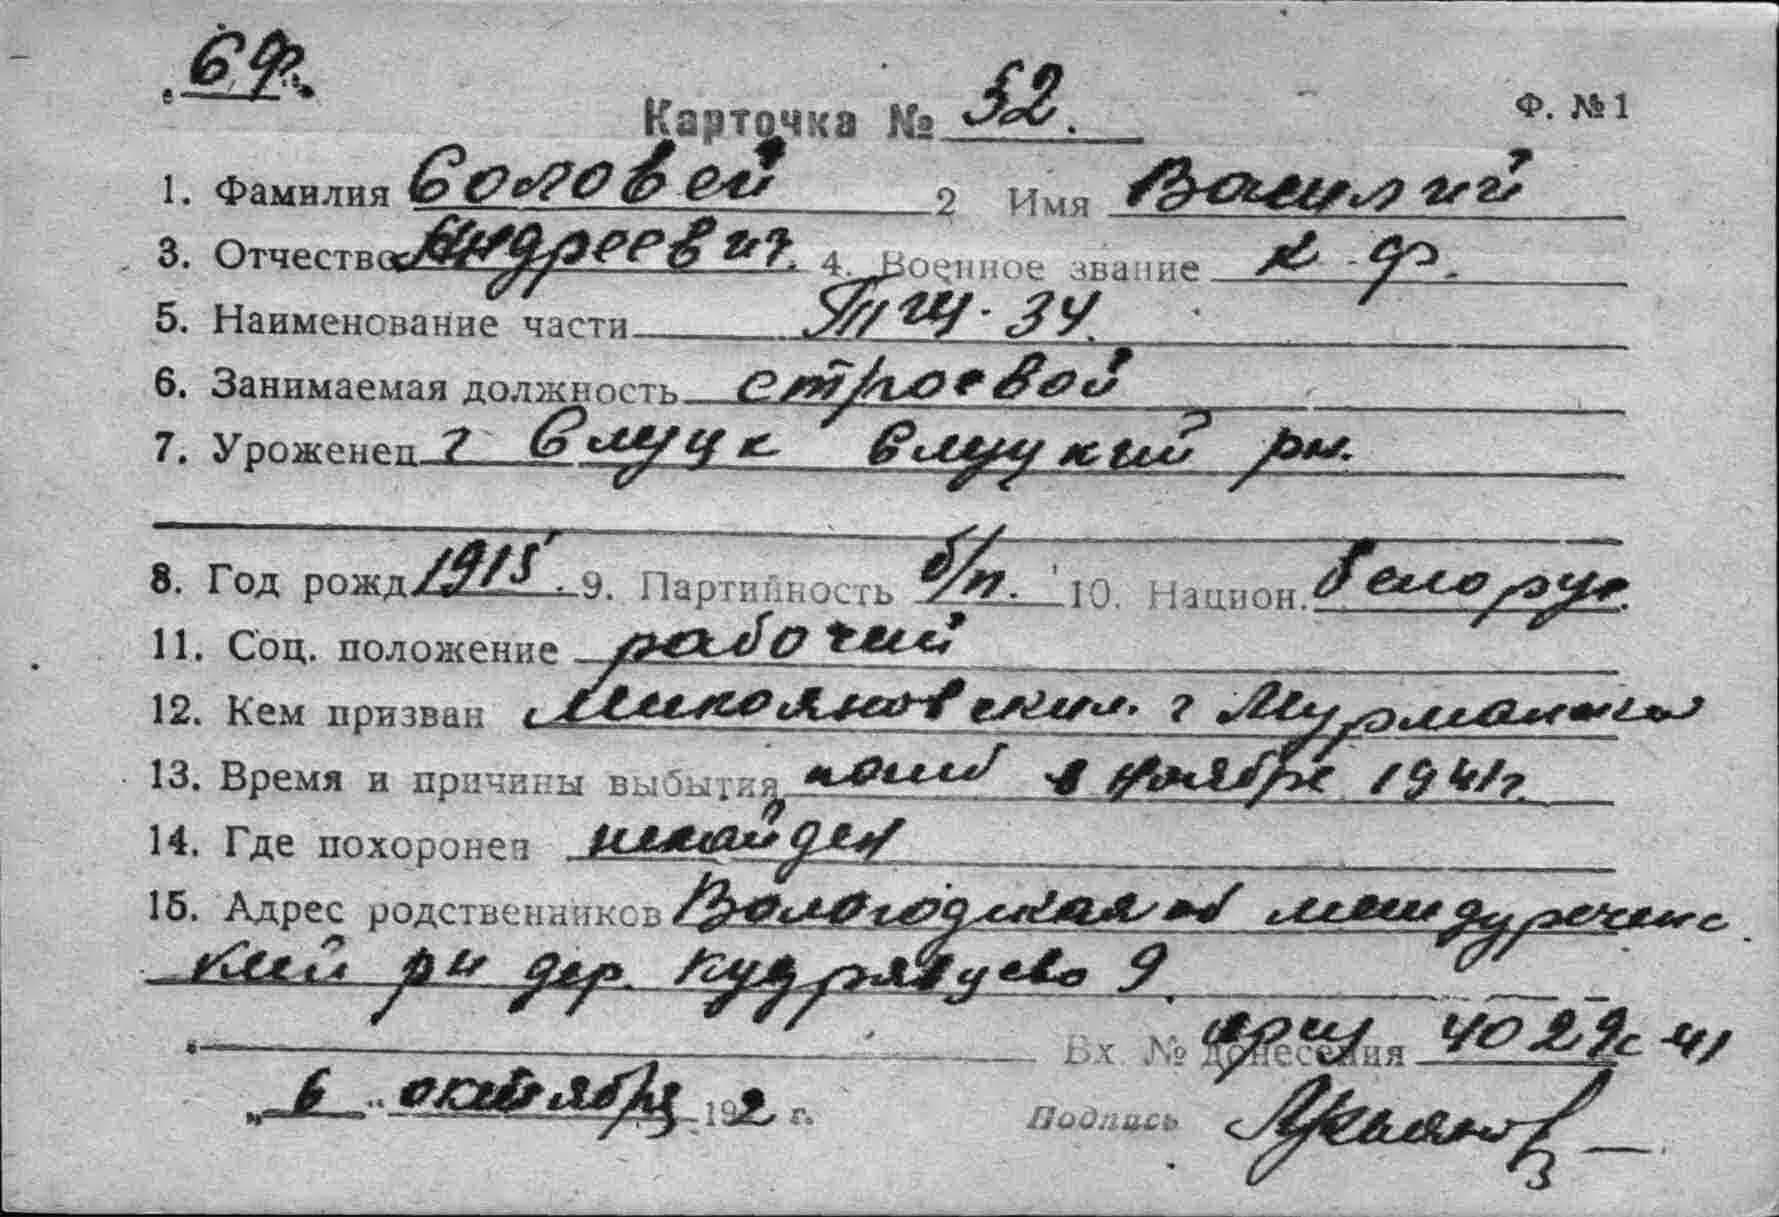 6 Ф.
Карточка № 52. Ф. №1
1. Фамилия Соловей 2 Имя Василий
3. Отчество Андреевич. 4. Военное звание к. ф.
5. Наименование части ТЩ-34.
6. Занимаемая должность строевой
7. Уроженец г Слуцк Слуцкий рн.
8. Год рожд 1915. 9. Партийность б/п. 10. Национ. белорус.
11. Соц. положение рабочий
12. Кем призван Микояновским. г Мурманска
13. Время и причины выбытия погиб в ноябре 1941г.
14. Где похоронен ненайден
15. Адрес родственников Вологодская об междуреченс
кий рн дер. Кудрявцево 9.
Вх. № донесения 4029с 41
„6" октября 192 г. Подпись